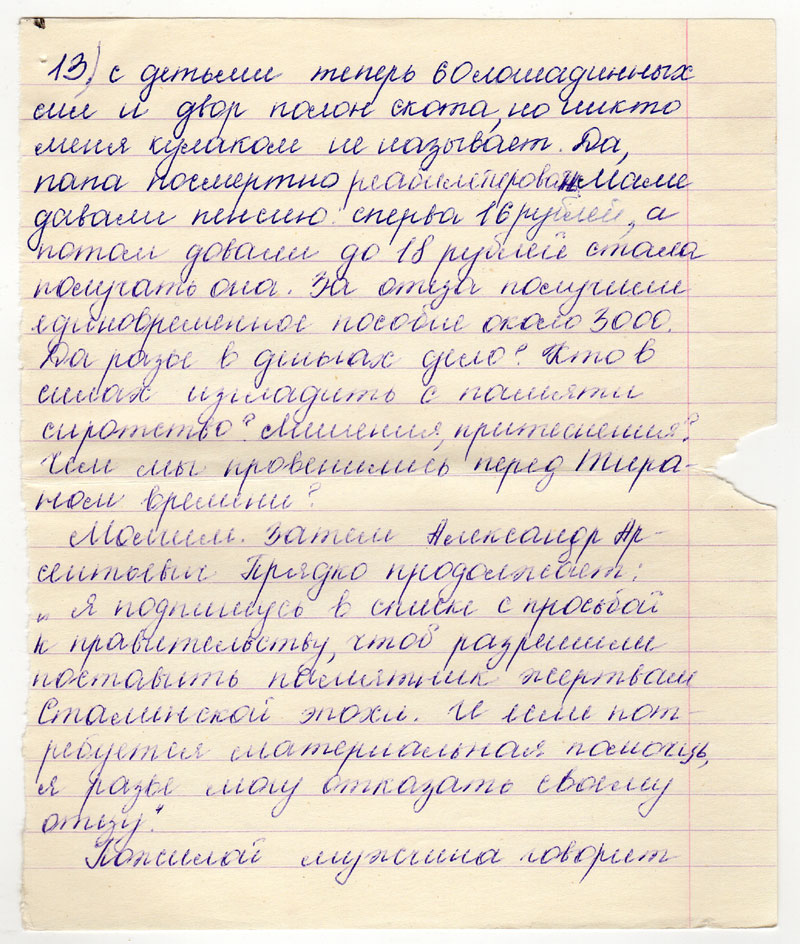 13) с детьми теперь 60 лошадинных
сил и двор полон скота, но никто
меня кулаком не называет. Да,
папа посмертно реабилитирован. Маме
давали пенсию: сперва 16 рублей, а
потом довали до 18 рублей стала
получать она. За отца получили
единовременное пособие около 3000.
Да разье в деньгах дело? Кто в
силах изгладить с памяти
сиротство? Лишения, притеснения?
Чем мы провенились перед Тира-
ном времени?
Молчим. Затем Александр Ар-
сентьевич Прядко продолжает:
„Я подпишусь в списке с просьбой
к правительству, чтоб разрешили
поставить памятник жертвам
Сталинской эпохи. И если пот-
ребуется материальная помощь,
я разье могу отказать своему
отцу".
Пожилой мужчина говорит